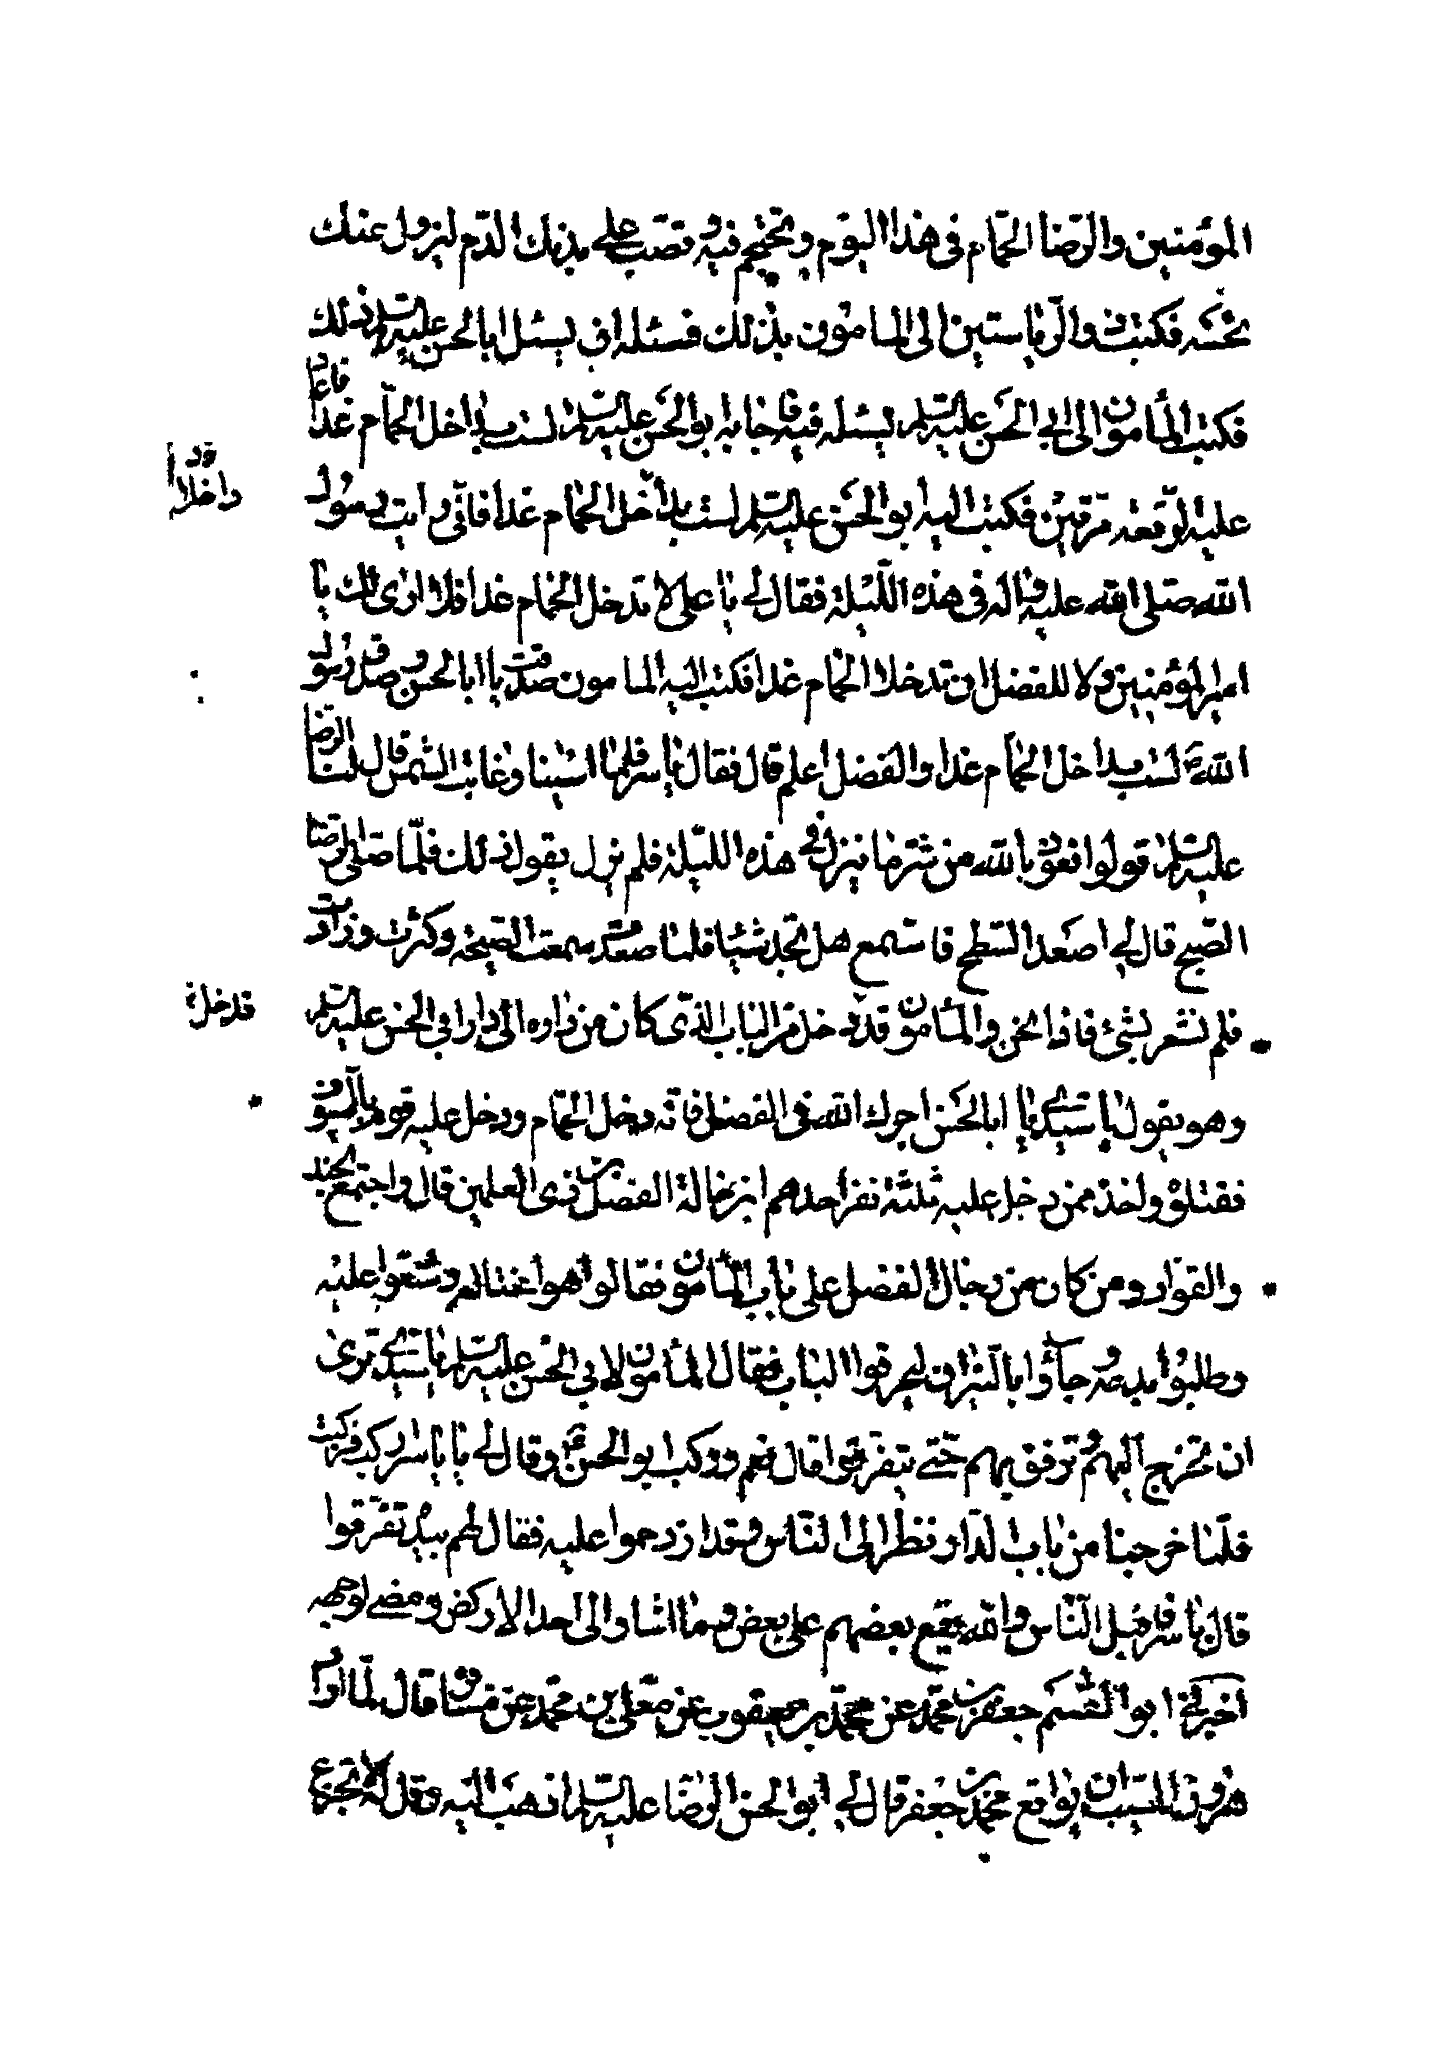 المؤمنين والرضا الحمّام فى هذا اليوم وتحتجم فيه وتصبّ على يديك الدّم ليزول عنك
نحسه فكتب ذو الرّياستين الى المأمون بذلك فسئله ان يسئل ابا الحسن عليه السلم ذلك
فكتب المأمون الى ابى الحسن عليه السلم يسئله فيه فاجابه ابو الحسن عليه السلم لست بداخل الحمّام غدا فاعاد
عليه الرّقعة مرّتين فكتب اليه ابو الحسن عليه السلم لست بداخل الحمّام غدا فانّى رايت رسول
الله صلى الله عليه واله فى هذه اللّيلة فقال لى يا على لا تدخل الحمّام غدا فلا ارى لك يا
امير المؤمنين ولا للفضل ان تدخلا الحمّام غدا فكتب اليه المأمون صدقت يا ابا الحسن وصدق رسول
الله لست بداخل الحمّام غدا والفضل اعلم قال فقال ياسر فلما امسينا وغابت الشّمس قال لنا الرضا
عليه السلم قولوا نعوذ بالله من شرّ ما ينزل فى هذه الليلة فلم نزل نقول ذلك فلمّا صلى الرضا
الصّبح قال لى اصعد السّطح فاستمع هل تجد شيئا فلما صعدت سمعت الصّيحة وكثرت وزادت
فلم نشعر بشئ فاذا نحن والمأمون قد دخل من الباب الذى كان من داره الى دار ابى الحسن عليه السلم
وهو يقول يا سيدى يا ابا الحسن اجرك الله فى الفضل فانّه دخل الحمّام ودخل عليه قوم بالسيوف
فقتلوه واخذ ممن دخل عليه ثلثة نفر احدهم ابن خالة الفضل بن ذى العلمين قال واجتمع الجند
والقوّاد ومن كان من رجال الفضل على باب المأمون فقالوا هو اغتاله وشنّعوا عليه
وطلبوا بدمه وجاؤا بالنيران ليحرقوا الباب فقال المأمون لابى الحسن عليه السلم يا سيدى ترى
ان تخرج اليهم وترفق بهم حتى يتفرّقوا قال نعم وركب ابو الحسن ع وقال لى يا ياسر اركب فركبت
فلمّا خرجنا من باب الدّار نظر الى النّاس وقد ازدحموا عليه فقال لهم بيده تفرّقوا
قال ياسر فاقبل النّاس والله يقع بعضهم على بعض وما اشار الى احد الا ركض ومضى لوجهه
اخبرنى ابو القسم جعفر بن محمّد عن محمّد بن يعقوب عن معلى بن محمّد عن مسافر قال لمّا اراد
هرون بن المسيب ان يواقع محمّد بن جعفر قال لى ابو الحسن الرضا عليه السلم اذهب اليه وقل له لا تخرج
داخلا
قد دخل